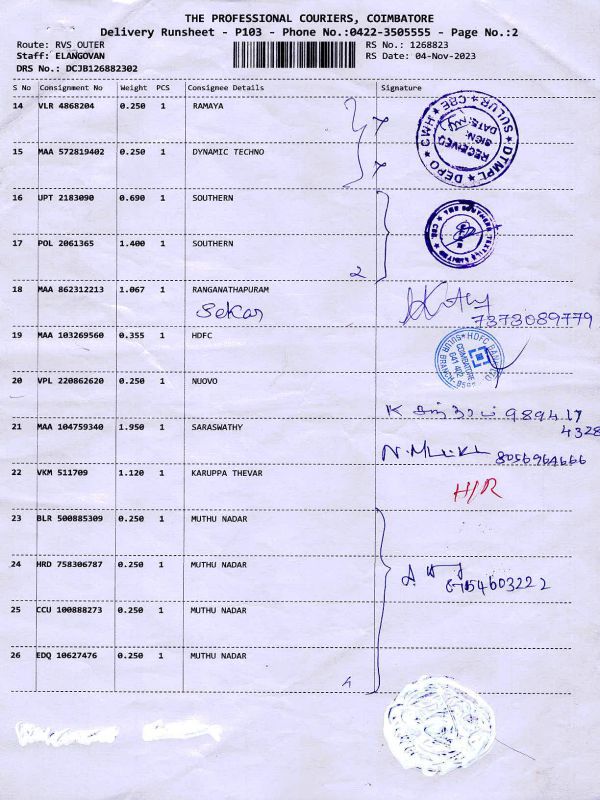 THE PROFESSIONAL COURIERS, COIMBATORE
Delivery Runsheet - P103 - Phone No.:0422-3505555 - Page No.:2
Route: RVS OUTER RS No.: 1268823
Staff: ELANGOVAN RS Date: 04-Nov-2023
DRS No.: DCJB126882302
S No Consignment No Weight PCS Consignee Details Signature
14 VLR 4868204 0.250 1 RAMAYA
SULUR ★ CBE ★ CWH ★ DEPO ★ DTMPL ★
RECEIVED
SIGN:
DATE:
15 MAA 572819402 0.250 1 DYNAMIC TECHNO
16 UPT 2183090 0.690 1 SOUTHERN
17 POL 2061365 1.400 1 SOUTHERN
2
18 MAA 862312213 1.067 1 RANGANATHAPURAM
Sekar
7373089779
19 MAA 103269560 0.355 1 HDFC
HDFC BANK
SULUR BRANCH
COIMBATORE
641 402
20 VPL 220862620 0.250 1 NUOVO
K 989417
4328
21 MAA 104759340 1.950 1 SARASWATHY
8056964666
22 VKM 511709 1.120 1 KARUPPA THEVAR
H/R
23 BLR 500885309 0.250 1 MUTHU NADAR
24 HRD 758306787 0.250 1 MUTHU NADAR
25 CCU 100888273 0.250 1 MUTHU NADAR
26 EDQ 10627476 0.250 1 MUTHU NADAR
4